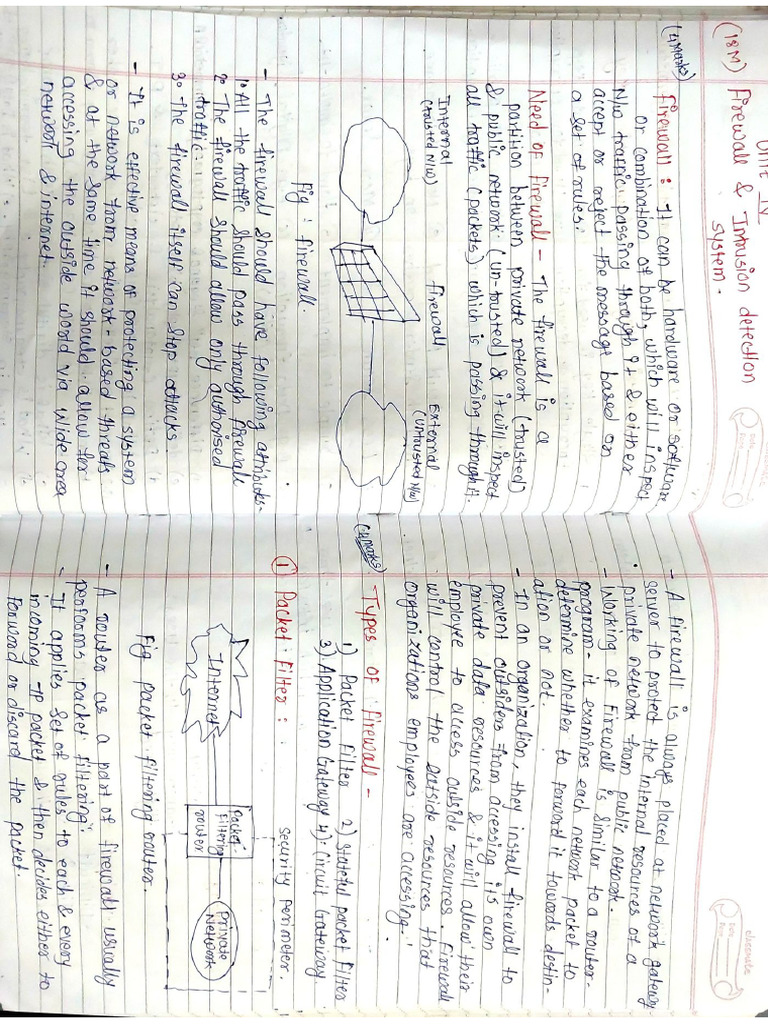 Unit IV
(18M) Firewall & Intrusion detection
system.
(4Marks)
Firewall : It can be hardware or software
or combination of both, which will inspect
N/w traffic passing through it & either
accept or reject the message based on
a set of rules.
Need of firewall - The firewall is a
partition between private network (trusted)
& public network (un-trusted) & it will inspect
all traffic (packets) which is passing through it.
Internal
(trusted N/w)
Firewall
External
(Untrusted N/w)
Fig : firewall.
- The firewall should have following attributes-
1. All the traffic should pass through firewall
2. The firewall should allow only authorised
traffic.
3. The firewall itself can stop attacks
- It is effective means of protecting a system
or network from network-based threats
& at the same time it should allow for
accessing the outside world via wide area
network & internet.
classmate
Date
Page
- A firewall is always placed at network gateway
server to protect the internal resources of a
private network from public network.
- Working of firewall is similar to a router-
program- it examines each network packet to
determine whether to forward it towards destin-
ation or not.
- In an organization, they install firewall to
prevent outsiders from accessing its own
private data resources & it will allow their
employee to access outside resources. Firewall
will control the outside resources that
organizations employees are accessing.
(4marks)
Types of firewall -
1) Packet Filter 2) Stateful packet Filter
3) Application Gateway 4) Circuit Gateway.
① Packet Filter :
Security Perimeter.
Internet
Packet-
Filtering
router
Private
Network
Fig Packet filtering router
- A router as a part of firewall usually
performs packet filtering.
- It applies set of rules to each & every
incoming IP packet & then decides either to
forward or discard the packet.